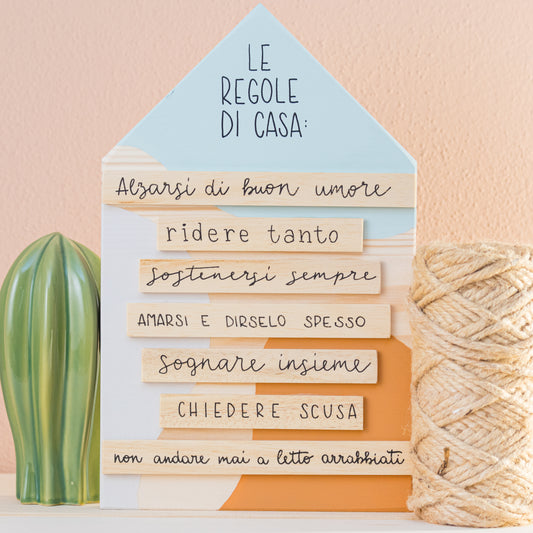 LE
REGOLE
DI CASA:
Alzarsi di buon umore
ridere tanto
Sostenersi sempre
AMARSI E DIRSELO SPESSO
Sognare insieme
CHIEDERE SCUSA
non andare mai a letto arrabbiati